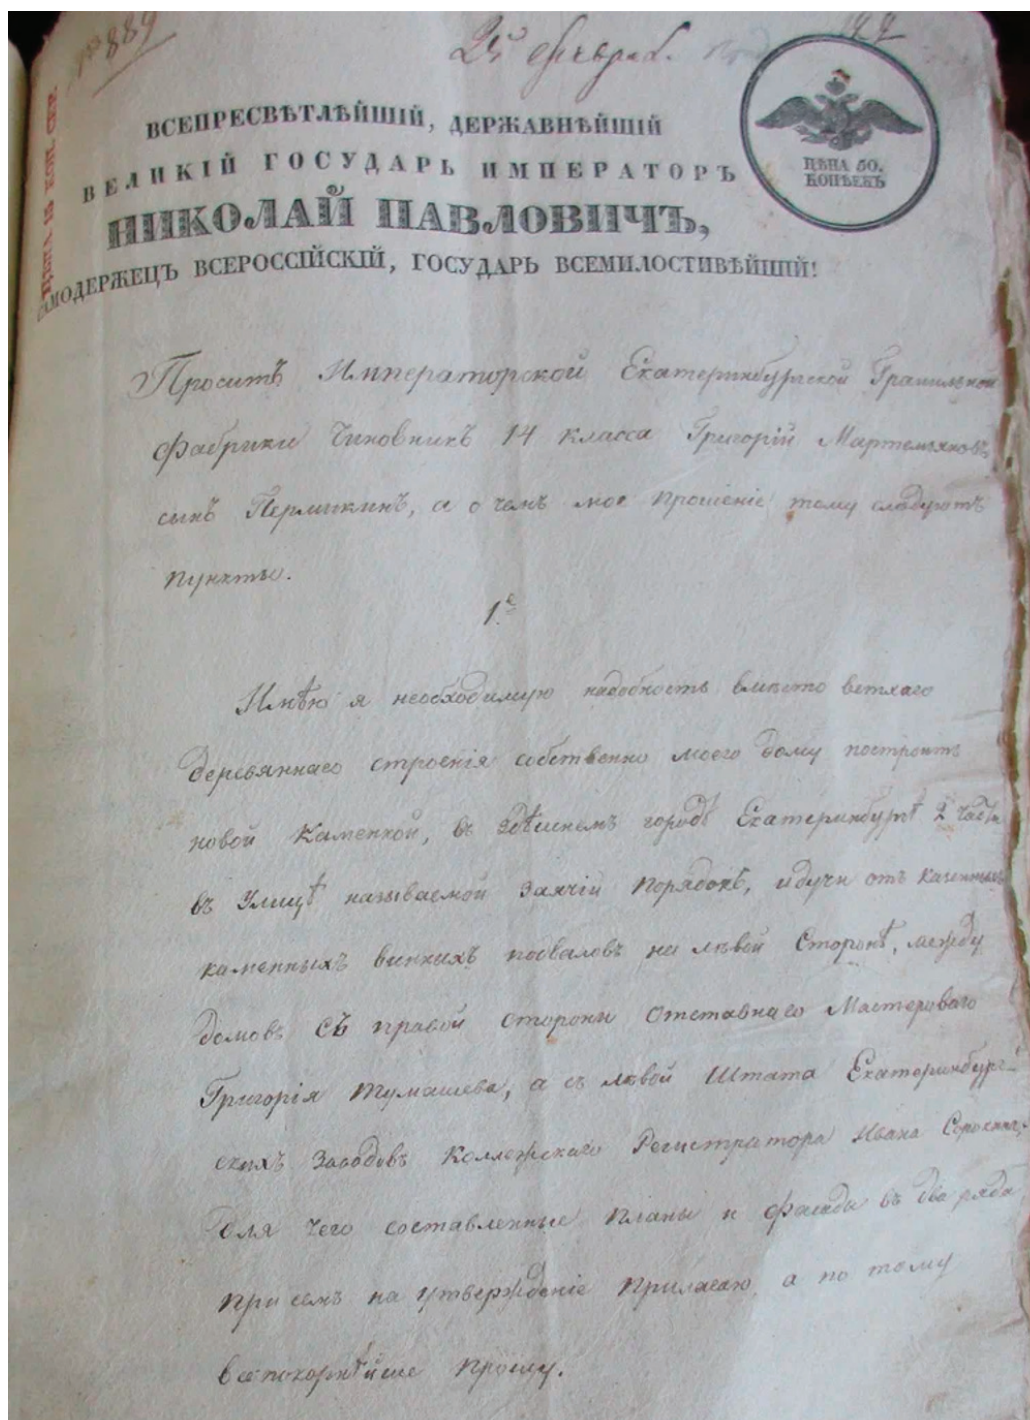 889
25 Феврал.
ВСЕПРЕСВѢТЛѢЙШІЙ, ДЕРЖАВНѢЙШІЙ
ВЕЛИКІЙ ГОСУДАРЬ ИМПЕРАТОРЪ
НИКОЛАЙ ПАВЛОВИЧЪ,
САМОДЕРЖЕЦЪ ВСЕРОССІЙСКІЙ, ГОСУДАРЬ ВСЕМИЛОСТИВѢЙШІЙ!
ЦѢНА 50.
КОПѢЕКЪ
ЦѢНА 15 КОП. СЕР.
Проситъ Императорской Екатеринбургской Гранильной
Фабрики Чиновникъ 14 класса Григорій Мартемьяновъ
сынъ Пермикинъ, а о чемъ мое прошеніе тому слѣдуютъ
пункты.
1е
Имѣю я необходимую надобность вмѣсто ветхаго
деревяннаго строенія собственно моего дому построить
новой Каменной, въ здѣшнемъ городѣ Екатеринбургѣ 2 части
въ Улицѣ называемой Заячій Порядокѣ, идучи отъ казенныхъ
каменныхъ винныхъ подваловъ на лѣвой Сторонѣ, между
домовъ съ правой стороны Отставнаго Мастероваго
Григорія Тумашева, а съ лѣвой Штата Екатеринбург-
скихъ Заводовъ Коллежскаго Регистратора Ивана Сорокина,
для чего составленные Планы и фасады въ два ряда
при семъ на утвержденіе прилагаю а по тому
всепокорнѣйше прошу.